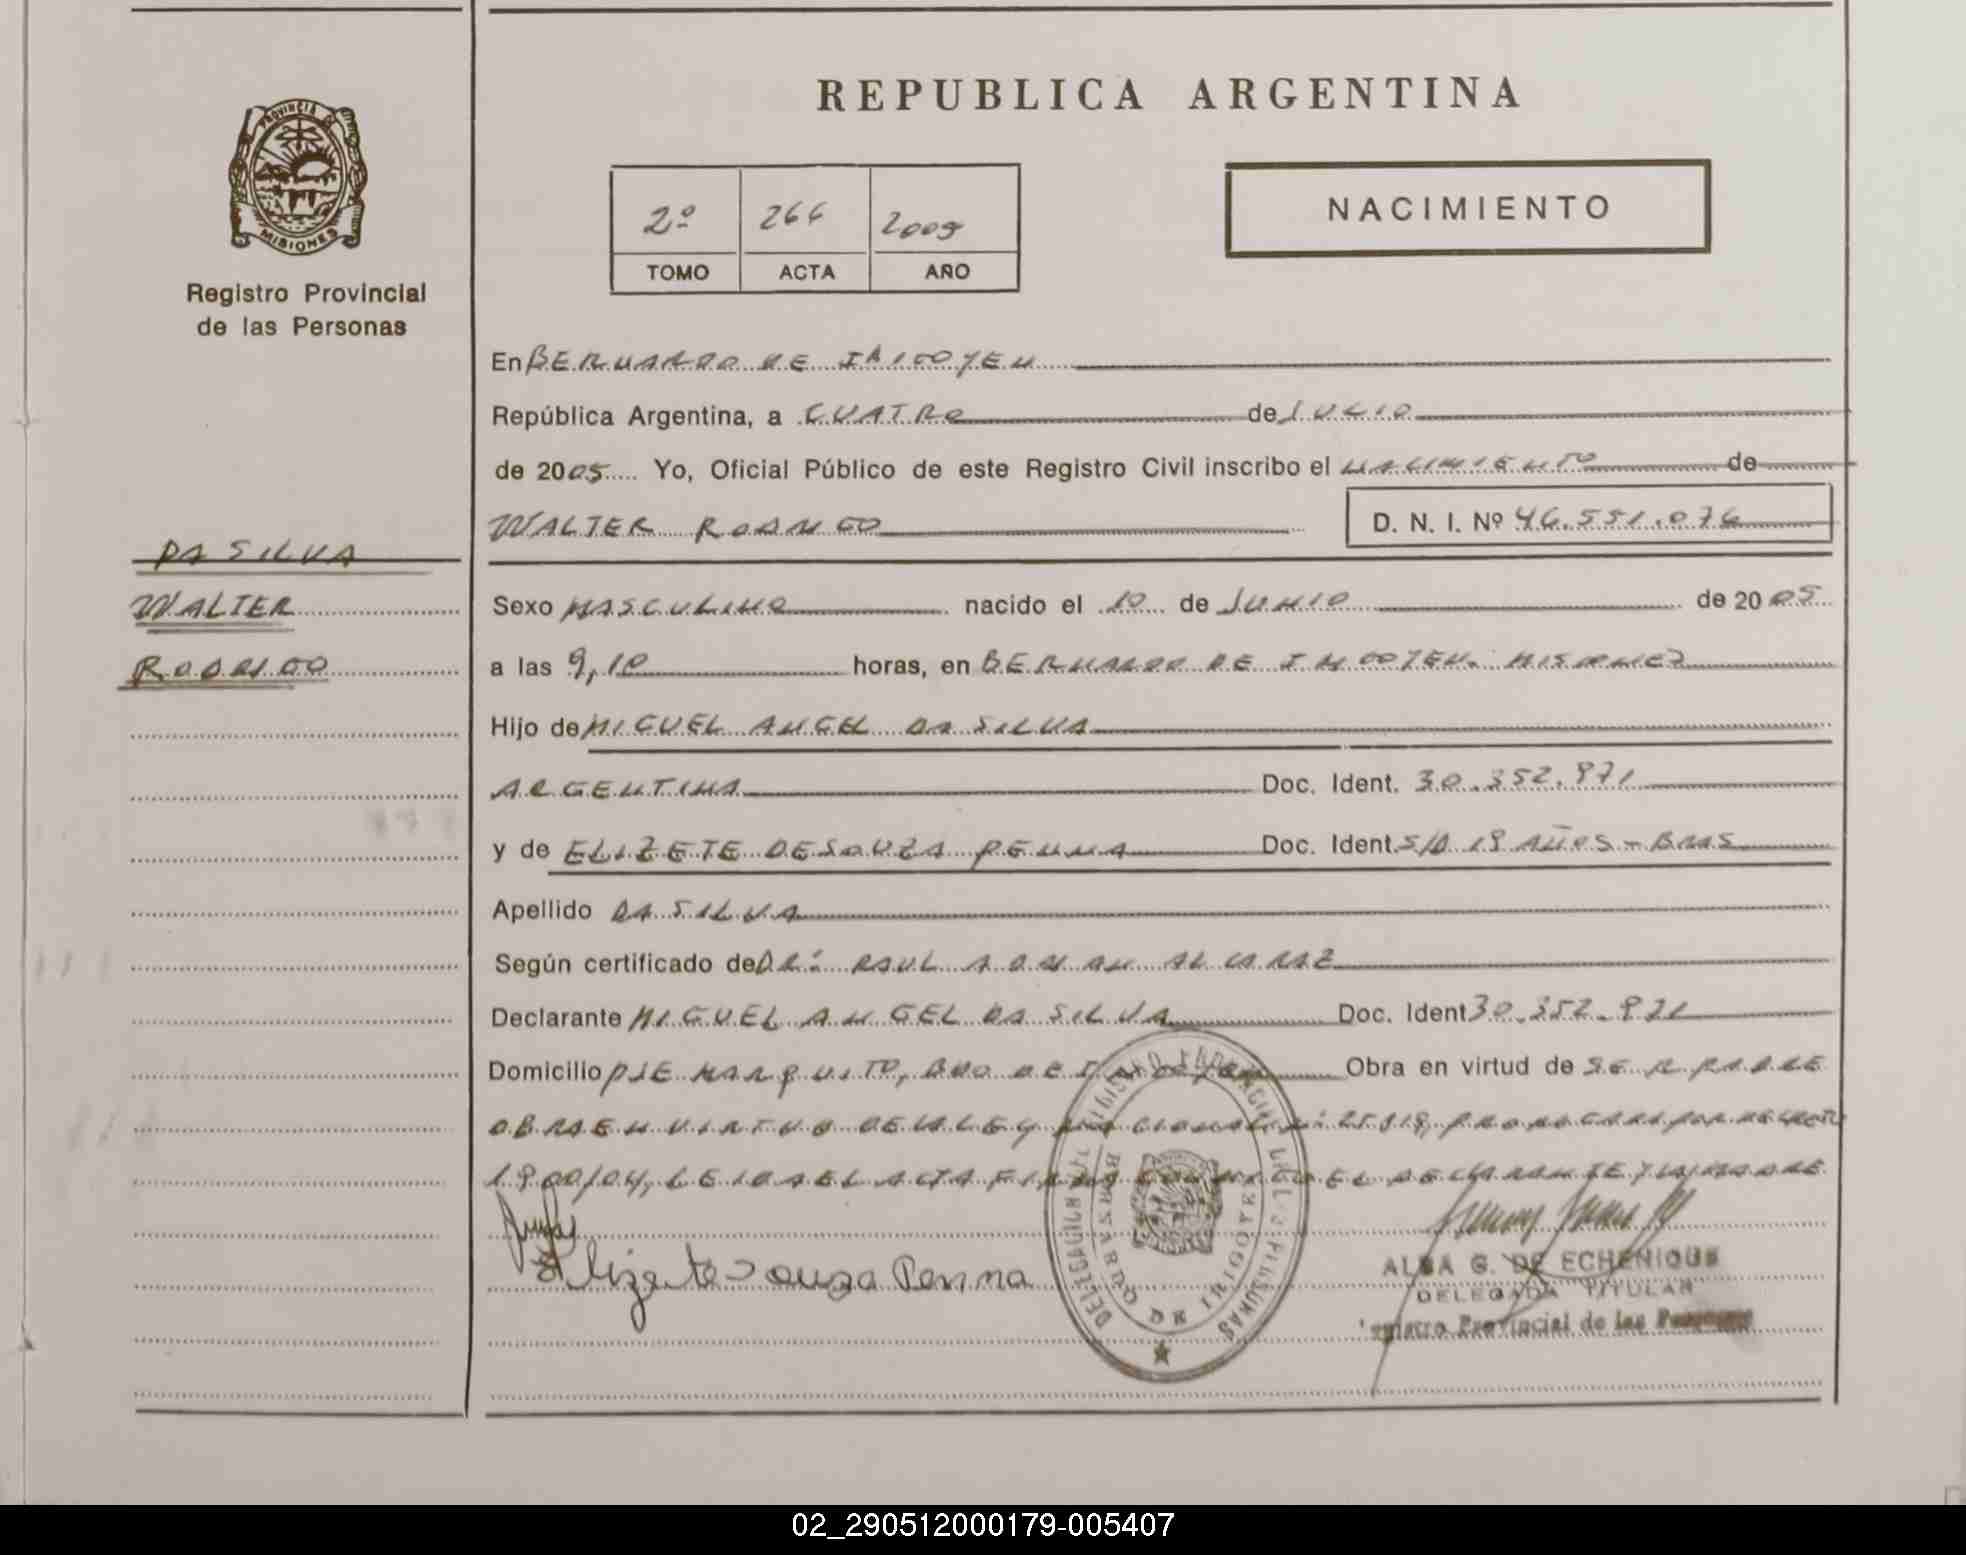 REPUBLICA ARGENTINA
PROVINCIA DE
MISIONES
Registro Provincial
de las Personas
2º 266 2005
TOMO ACTA AÑO
NACIMIENTO
En BERNARDO DE IRIGOYEN
República Argentina, a CUATRO de JULIO
de 2005 Yo, Oficial Público de este Registro Civil inscribo el NACIMIENTO de
WALTER RODRIGO D. N. I. Nº 46.551.076
DA SILVA
WALTER
RODRIGO
Sexo MASCULINO nacido el 10 de JUNIO de 2005
a las 9,10 horas, en BERNARDO DE IRIGOYEN. MISIONES
Hijo de MIGUEL ANGEL DA SILVA
ARGENTINA Doc. Ident. 30.352.971
y de ELIZETE DESOUZA PENNA Doc. Ident. S/D 19 AÑOS - BRAS
Apellido DA SILVA
Según certificado de DR: RAUL ALCARAZ
Declarante MIGUEL ANGEL DA SILVA Doc. Ident 30.352.971
Domicilio PJE MARQUITO, BDO DE IRIGOYEN Obra en virtud de SER PADRE
OBRA EN VIRTUD DE LA LEY NACIONAL Nº: 25.819, PROROGADA POR DECRETO
1900/04, LEIDA EL ACTA FIRMA CONMIGO EL DECLARANTE Y LA MADRE
Elizete Souza Penna
DELEGACION REGISTRO PROVINCIAL DE LAS PERSONAS
BERNARDO DE IRIGOYEN
ALBA G. DE ECHENIQUE
DELEGADA TITULAR
Registro Provincial de las Personas
02_290512000179-005407